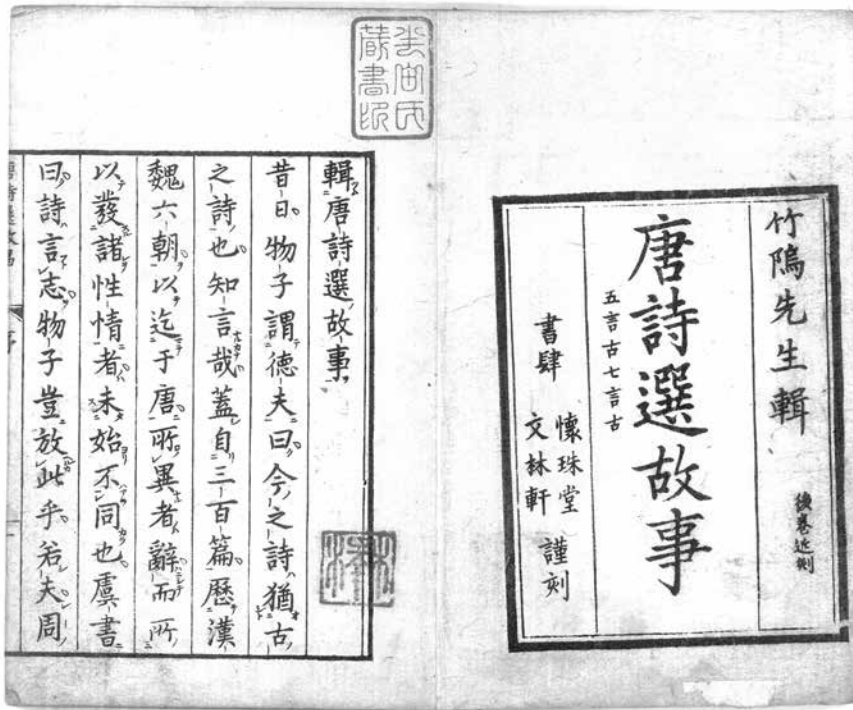 竹隖先生輯
後巻近刻
唐詩選故事
五言古七言古
書肆
懷珠堂
文林軒
謹刻
藏書記
輯唐詩選故事
昔日物子謂德夫曰今之詩猶古
之詩也知言哉蓋自三百篇歷漢
魏六朝以迄于唐所異者辭而所
以發諸性情者未始不同也虞書
曰詩言志物子豈放此乎若夫周